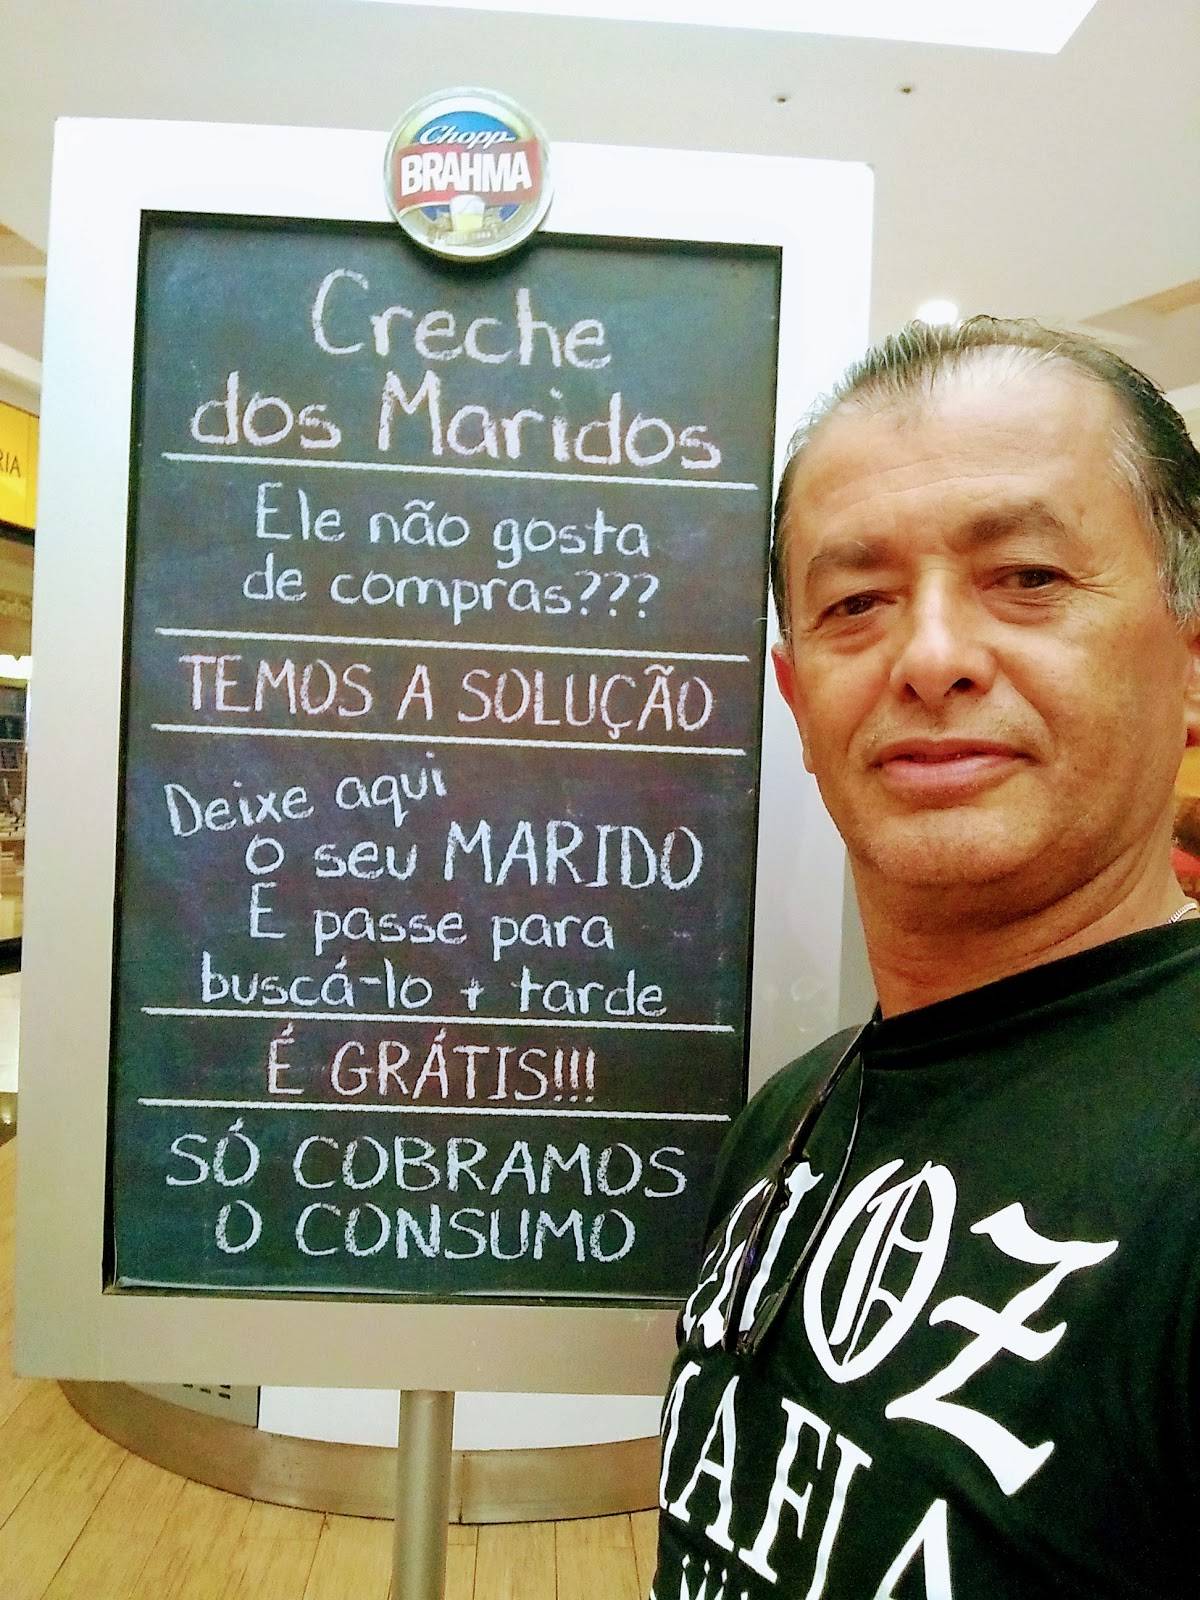 Chopp
BRAHMA
Creche
dos Maridos
Ele não gosta
de compras???
TEMOS A SOLUÇÃO
Deixe aqui
o seu MARIDO
E passe para
buscá-lo + tarde
É GRÁTIS!!!
SÓ COBRAMOS
O CONSUMO
RIA
OZ
MAFIA